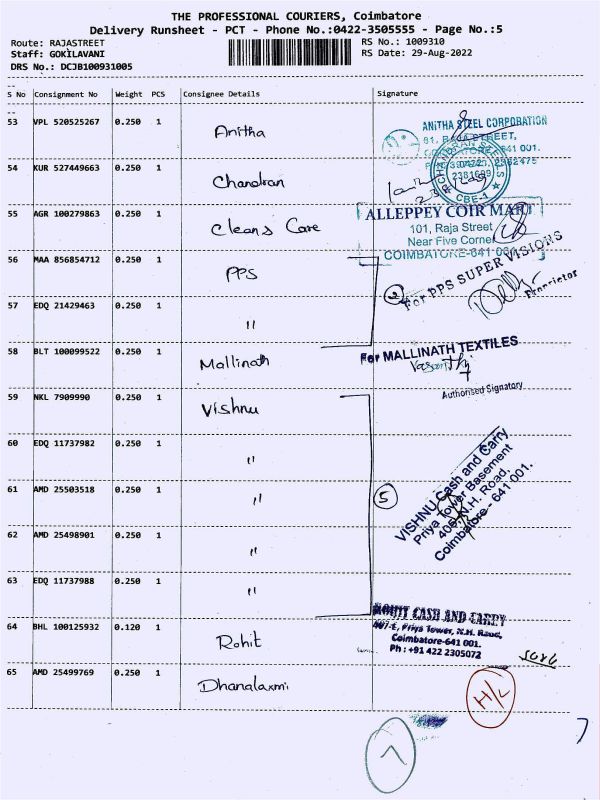 THE PROFESSIONAL COURIERS, Coimbatore
Delivery Runsheet - PCT - Phone No.:0422-3505555 - Page No.:5
Route: RAJASTREET
RS No.: 1009310
Staff: GOKILAVANI
RS Date: 29-Aug-2022
DRS No.: DCJB100931005
S No Consignment No Weight PCS Consignee Details Signature
53 VPL 520525267 0.250 1 Anitha
ANITHA STEEL CORPORATION
81, RAJA STREET,
54 KUR 527449663 0.250 1 Chandran
CBE-1
55 AGR 100279863 0.250 1 Cleans Care
ALLEPPEY COIR MART
101, Raja Street
Near Five Corner
COIMBATORE-641 001
56 MAA 856854712 0.250 1 PPS
2
For PPS SUPER VISIONS
Proprietor
57 EDQ 21429463 0.250 1 "
58 BLT 100099522 0.250 1 Mallinath
For MALLINATH TEXTILES
Vasanthi
Authorised Signatory
59 NKL 7909990 0.250 1 Vishnu
60 EDQ 11737982 0.250 1 "
61 AMD 25503518 0.250 1 "
5
VISHNU Cash and Carry
Priya Tower Basement
406, N.H. Road,
Coimbatore - 641 001.
62 AMD 25498901 0.250 1 "
63 EDQ 11737988 0.250 1 "
64 BHL 100125932 0.120 1 Rohit
ROHIT CASH AND CARRY
407-E, Priya Tower, N.H. Road,
Coimbatore-641 001.
Ph : +91 422 2305072
65 AMD 25499769 0.250 1 Dhanalaxmi
H/L
7
7